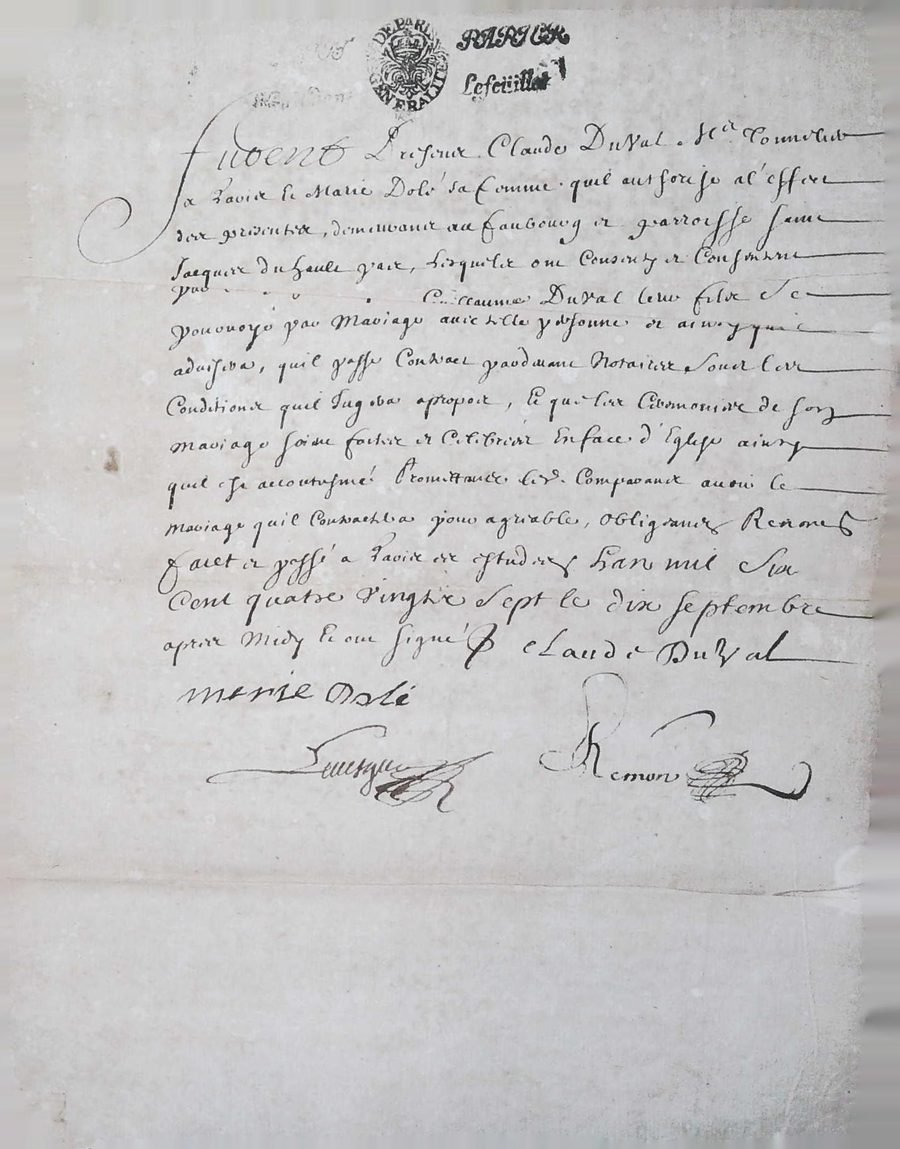 DE PARIS GENERALITE
Le feüillet
Furent Presens Claude Duval Me Tonnelier
a Paris Et Marie Dolé sa femme quil authorise a l'effect
des presentes, demeurans au faubourg et parroisse saint
Jacques du hault pas, lesquels ont Consenty et Consentent
par
Guillaume Duval leur fils se
pourvoye par Mariage avec telle personne et ainsy quil
advisera, quil passe Contract pardevant Notaires Soubs les
Conditions quil Jugera apropos, Et que les Ceremonies de son
mariage soient faites et Celebrées En face d'Eglise ainsy
quil est accoustumé Promettans lesd. Comparans avoir le
mariage quil Contractera pour agreable, Obligeans Renons
faict et passé a Paris es estudes L'an mil Six
Cent quatre Vingts Sept le dix septembre
apres Midy Et ont signé Claude Duval
marie Dolé
Levesque
Remon